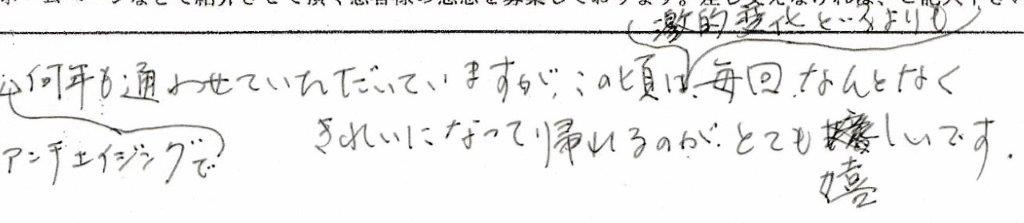 激的変化というよりも
何年も通わせていただいていますが、この頃は、毎回、なんとなく
アンチエイジングで
きれいになって帰れるのが、とても嬉しいです。
嬉